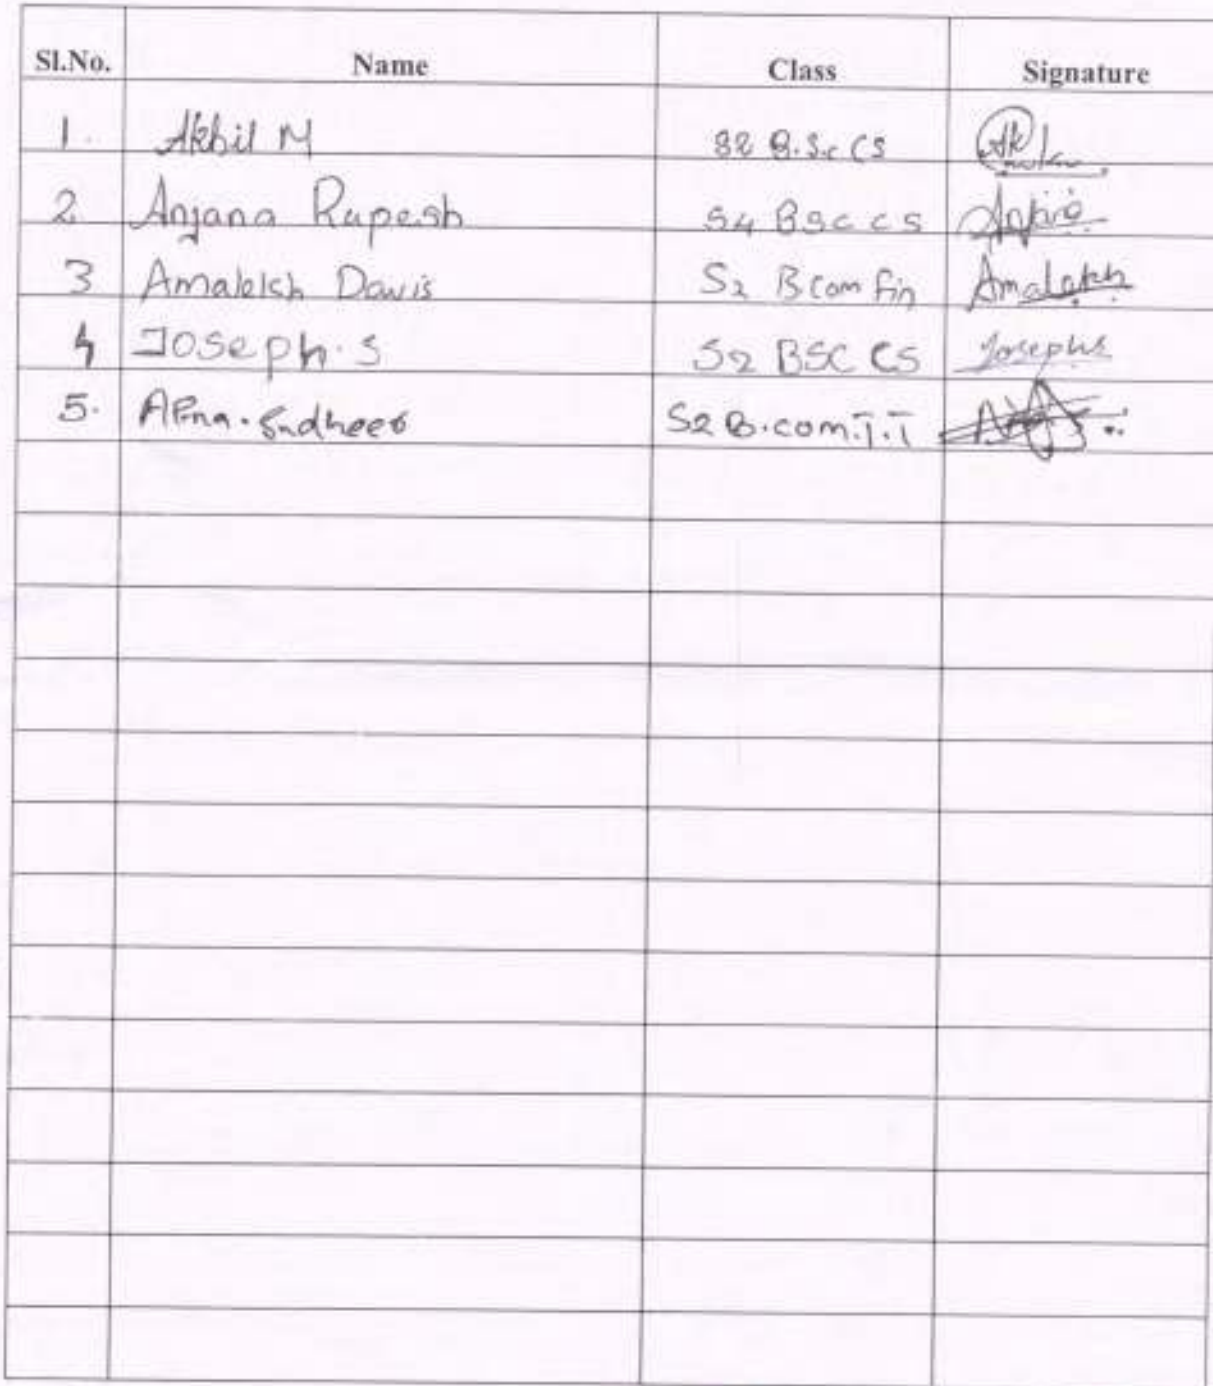 Sl.No. Name Class Signature
1. Akhil M S2 B.Sc CS
2 Anjana Rupesh S4 BSc CS
3 Amalelsh Davis S2 B Com Fin
4 Joseph.S S2 BSC CS Josephs
5. Sudheer S2 B.com.I.T